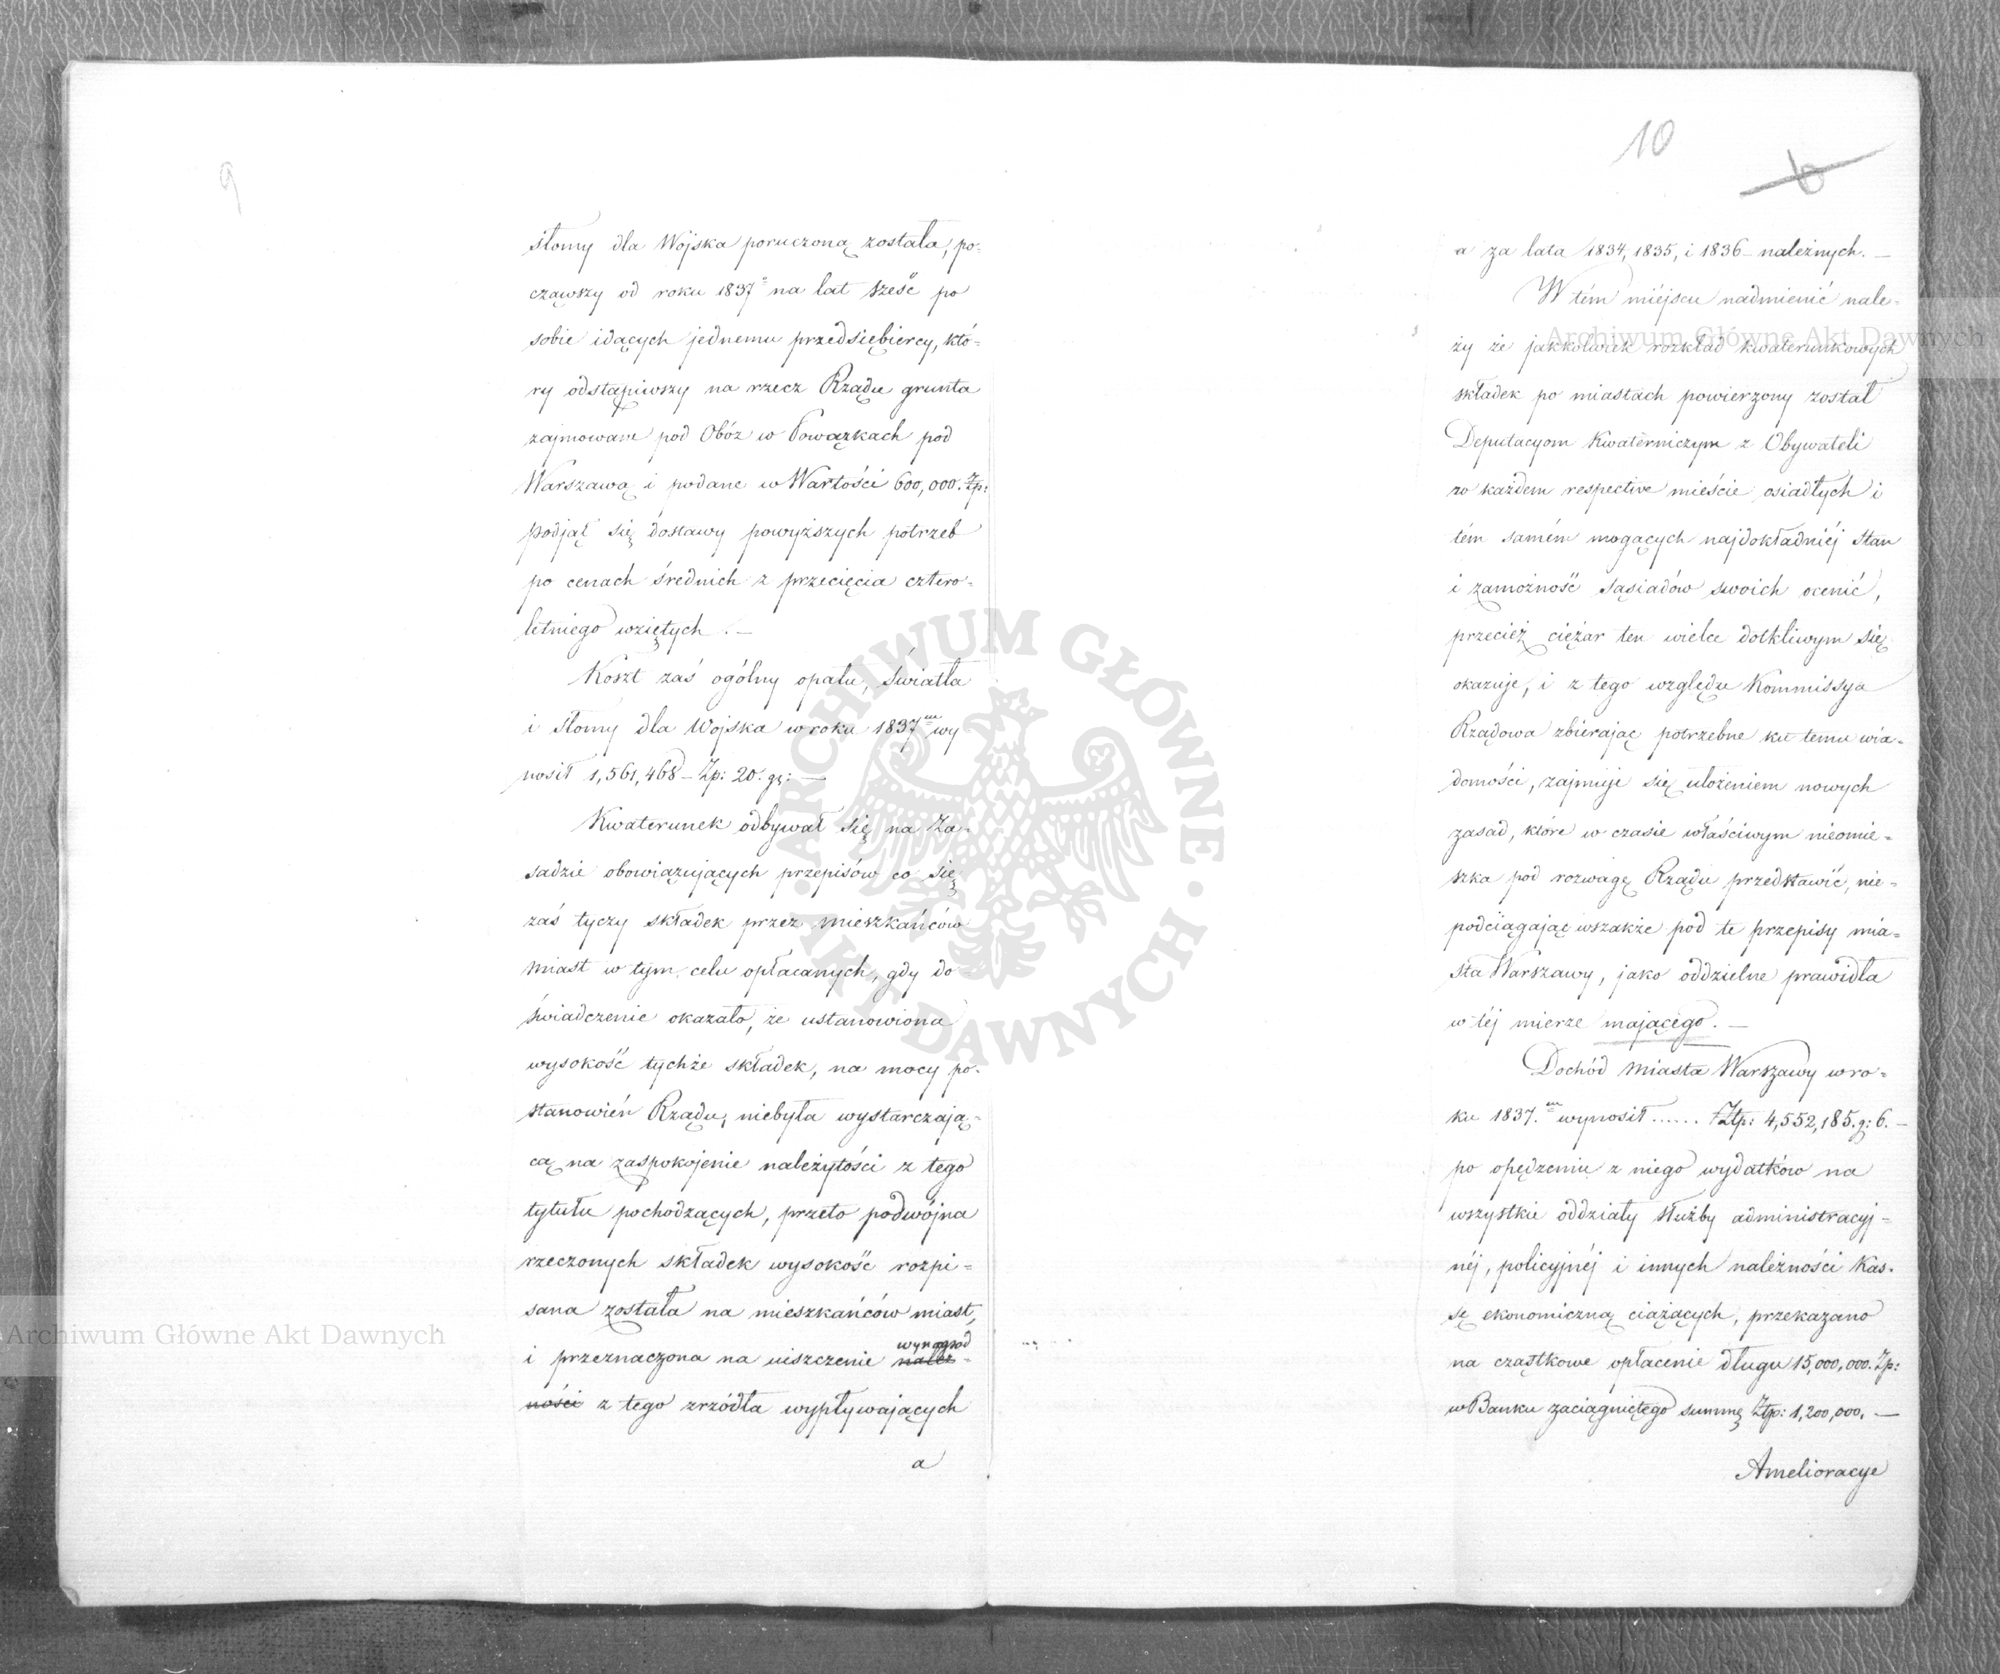 9
słomy dla Wojska poruczoną została, po-
cząwszy od roku 1837º na lat sześć po
sobie idących jednemu przedsiębiercy, któ-
ry odstąpiwszy na rzecz Rządu grunta
zajmowane pod Obóz w Powązkach pod
Warszawą i podane w Wartości 600,000. Złp:
podjął się dostawy powyższych potrzeb
po cenach średnich z przecięcia cztero-
letniego wziętych. —
Koszt zaś ogólny opału, światła
i słomy dla Wojska w roku 1837m wy
nosił 1,561,468 – Złp: 20. gr: —
Kwaterunek odbywał się na Za-
sadzie obowiązujących przepisów co się
zaś tyczy składek przez mieszkańców
miast w tym celu opłacanych, gdy do-
świadczenie okazało, że ustanowiona
wysokość tychże składek, na mocy po-
stanowień Rządu, niebyła wystarczają-
cą na zaspokojenie należytości z tego
tytułu pochodzących, przeto podwójna
rzeczonych składek wysokość rozpi-
sana została na mieszkańców miast,
wynagrod
i przeznaczona na uiszczenie należ-
ności z tego zrzódła wypływających
a
10
6
a za lata 1834, 1835, i 1836 – należnych. —
W tém miéjscu nadmienić nale-
ży że jakkolwiek rozkład kwaterunkowych
składek po miastach powierzony został
Deputacyom Kwaterniczym z Obywateli
w każdem respective mieście osiadłych i
tém samém mogących najdokładniéj stan
i zamożność sąsiadów swoich ocenić,
przecież ciężar ten wielce dotkliwym się
okazuje, i z tego względu Kommissya
Rządowa zbierając potrzebne ku temu wia-
domości, zajmuje się ułożeniem nowych
zasad, które w czasie właściwym nieomie-
szka pod rozwagę Rządu przedstawić, nie-
podciągając wszakże pod te przepisy mia-
sta Warszawy, jako oddzielne prawidła
w téj mierze mającego. —
Dochód miasta Warszawy w ro-
ku 1837.m wynosił ...... Złp: 4,552,185. g: 6. –
po opędzeniu z niego wydatków na
wszystkie oddziały służby administracyj-
néj, policyjnéj i innych należności Kas-
sę ekonomiczną ciążących, przekazano
na cząstkowe opłacenie długu 15,000,000. Złp:
w Banku zaciągniętego summę Złp: 1,200,000. —
Amelioracye
Archiwum Główne Akt Dawnych
Archiwum Główne Akt Dawnych
ARCHIWUM GŁÓWNE · AKT DAWNYCH ·